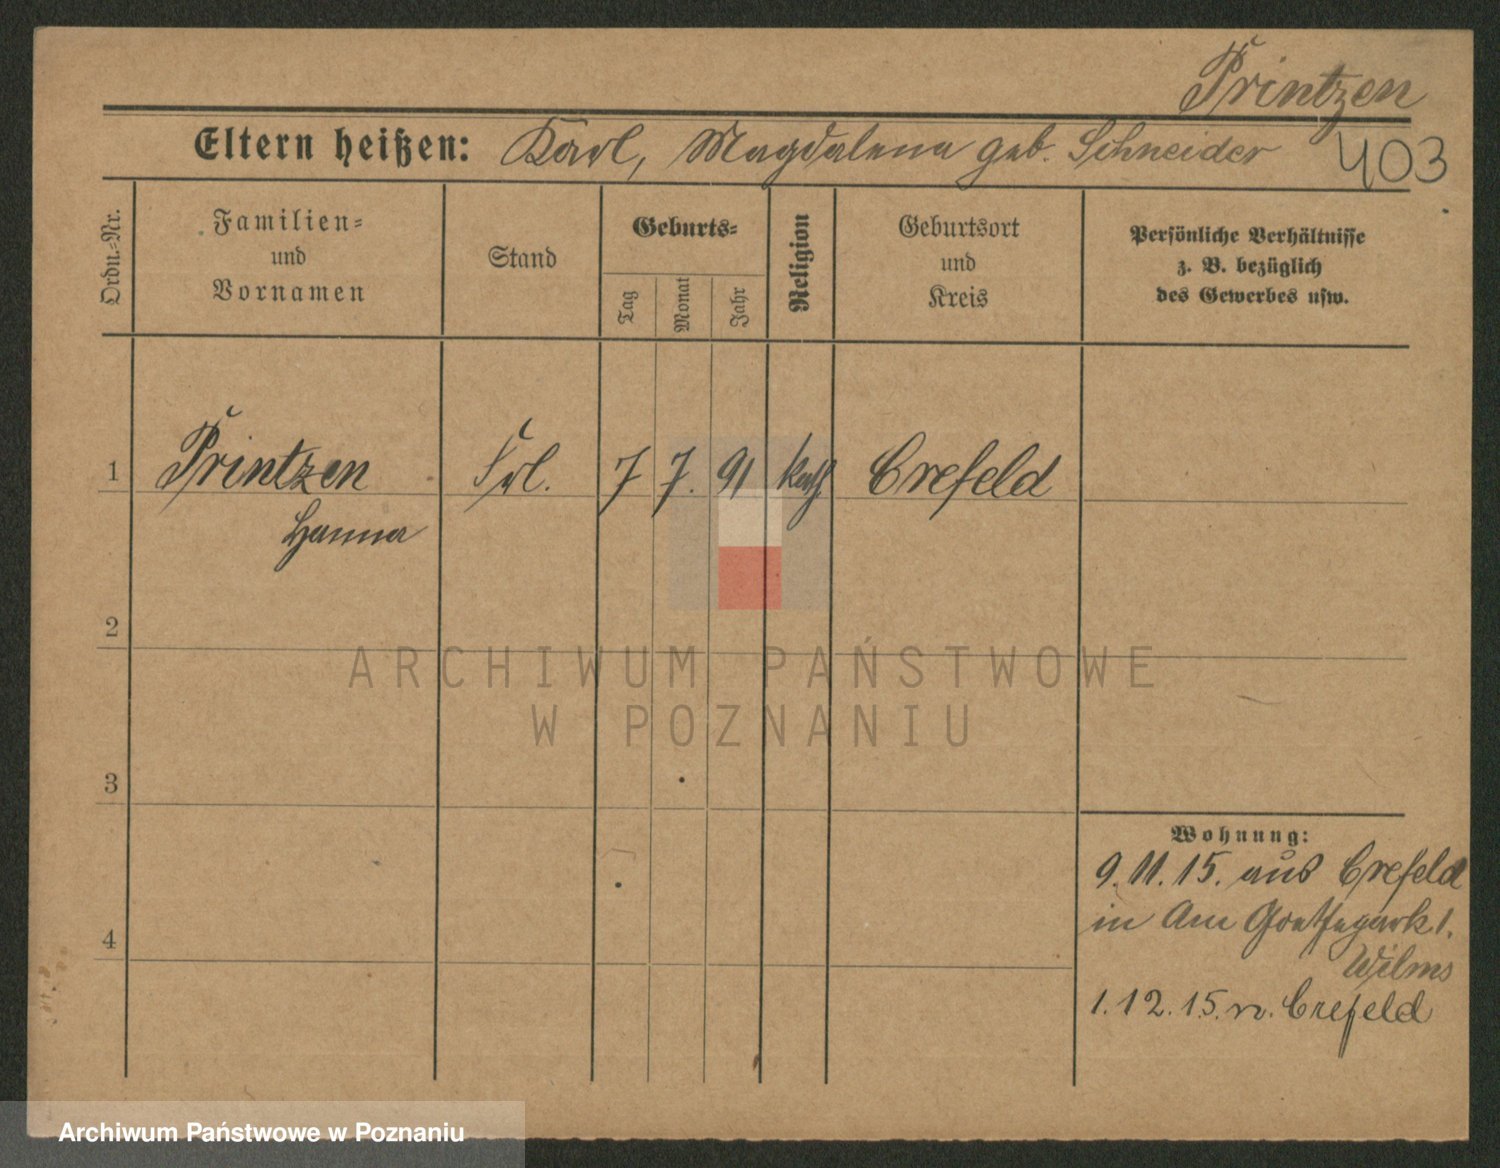 Printzen
Eltern heißen: Karl, Magdalena geb. Schneider 403
Ordn.-Nr.
Familien-
und
Vornamen
Stand
Geburts-
Tag
Monat
Jahr
Religion
Geburtsort
und
Kreis
Persönliche Verhältnisse
z. B. bezüglich
des Gewerbes usw.
1 Printzen Frl. 7 7. 91 kath. Crefeld
Hanna
2
3
4
Wohnung:
9.11.15. aus Crefeld
in Am Goethepark 1.
Wilms
1.12.15. n. Crefeld
ARCHIWUM PAŃSTWOWE
W POZNANIU
Archiwum Państwowe w Poznaniu